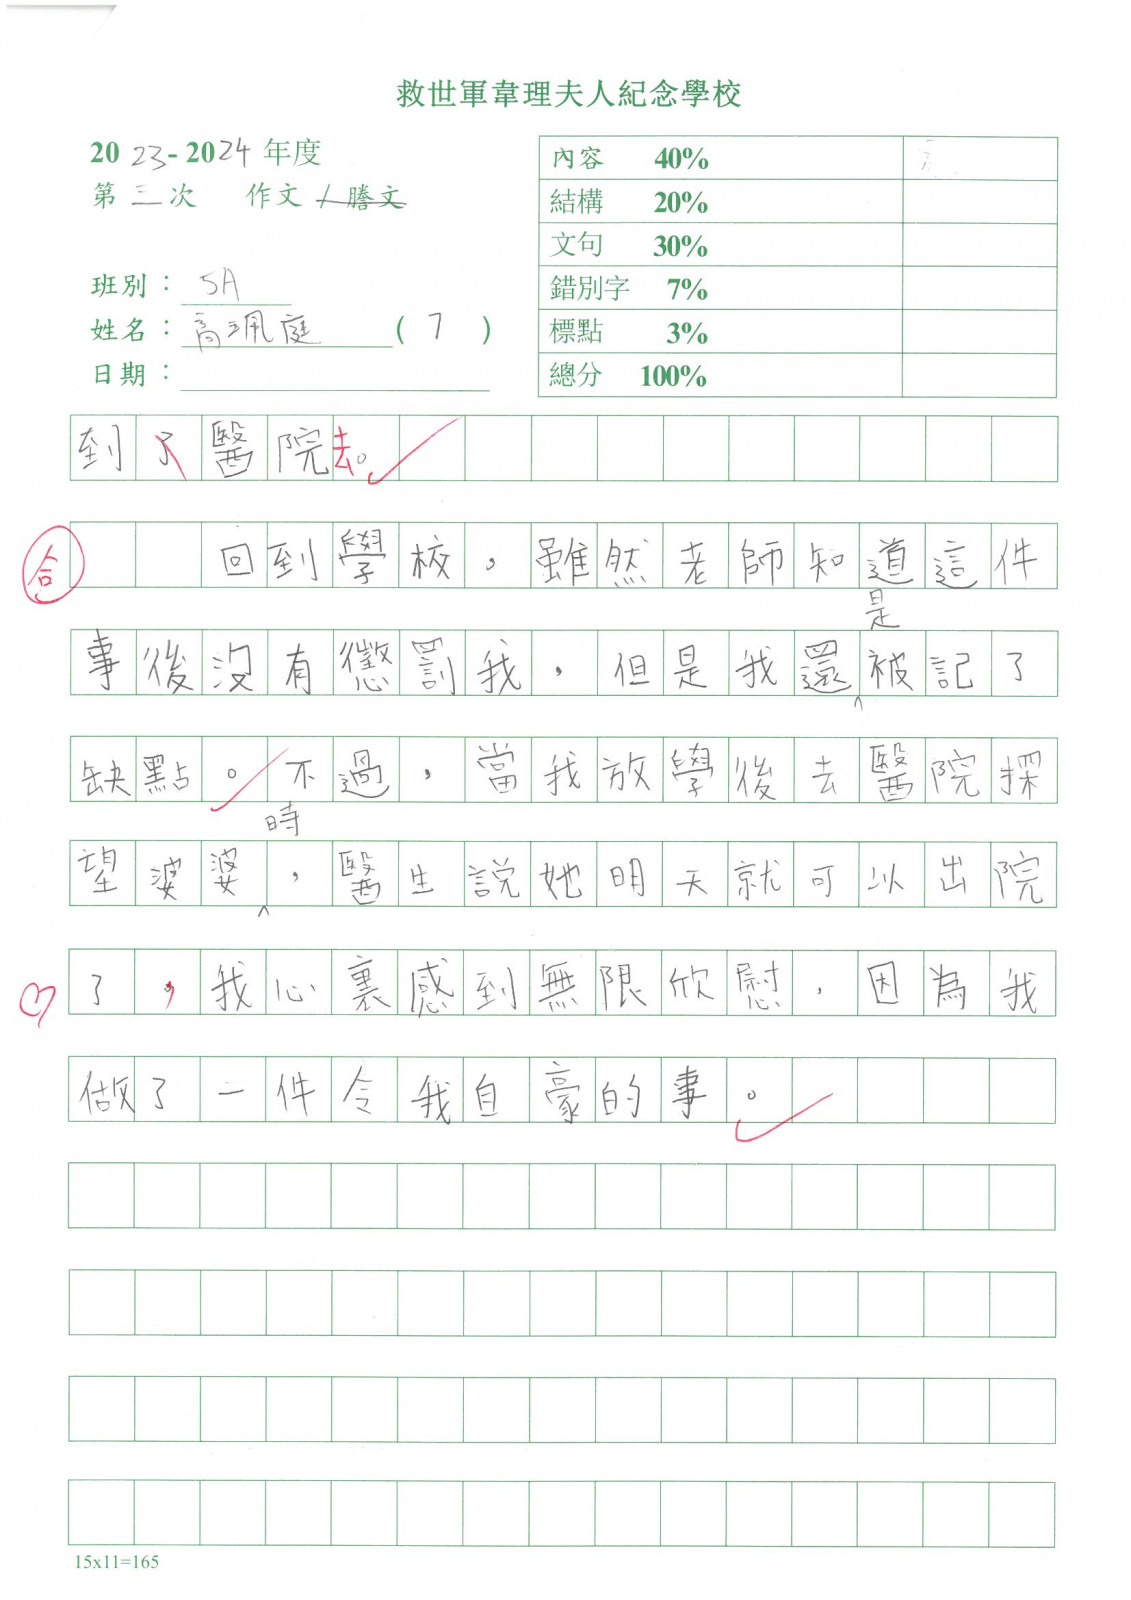 救世軍韋理夫人紀念學校
2023-2024年度
第三次 作文/謄文
班別：5A
姓名：高珮庭(7)
日期：
內容 40%
結構 20%
文句 30%
錯別字 7%
標點 3%
總分 100%
到了醫院去。
合
回到學校，雖然老師知道這件
是
事後沒有懲罰我，但是我還被記了
缺點。不過，當我放學後去醫院探
時
望婆婆，醫生說她明天就可以出院
了，我心裏感到無限欣慰，因為我
做了一件令我自豪的事。
15x11=165